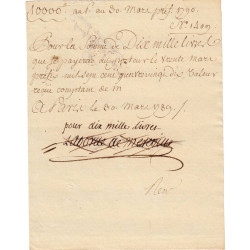 10000# au 30 Mars 1790.
N° 1409
Pour la somme de Dix mille livres
que je payerai au porteur le trente mars
mil sept cent quatrevingt dix valeur
reçue comptant de m
A Paris le 30 Mars 1789
pour dix mille livres
Laborde de mereville